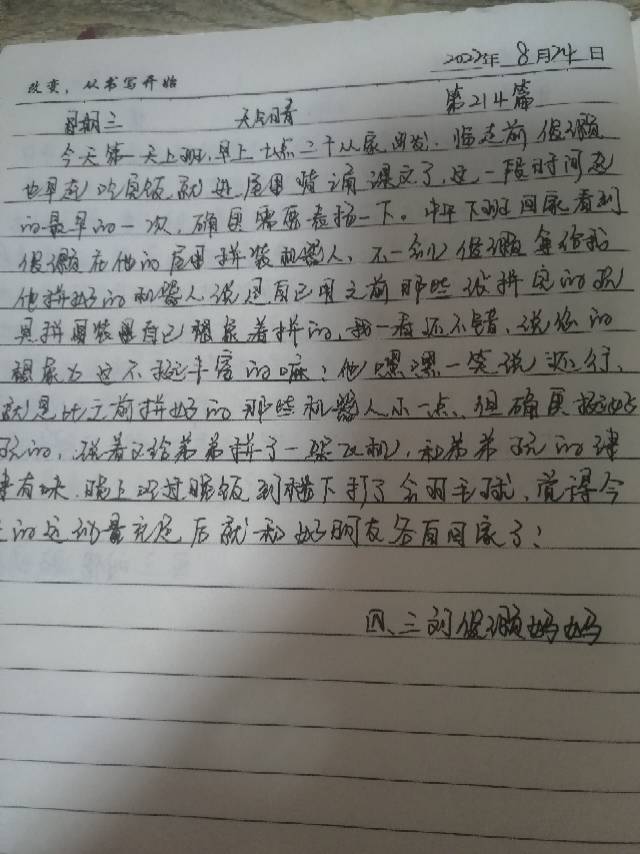 2022年 8月24日
改变，从书写开始
星期三 天气晴 第214篇
今天第一天上班，早上七点三十从家出发，临走前俊颉
也早起吃完饭就进屋里背诵课文了，这一段时间起
的最早的一次，确实需要表扬一下。中午下班回家看到
俊颉在他的屋里拼装机器人，不一会儿俊颉拿给我
他拼好的机器人说是自己用之前那些没拼完的玩
具拼装是自己想象着拼的，我一看还不错，说你的
想象力这不挺丰富的嘛！他嘿嘿一笑说还行，
就是比之前拼好的那些机器人小一点，但确实挺好
玩的，说着又给弟弟拼了一架飞机，和弟弟玩的津
津有味，晚上吃过晚饭到楼下打了会羽毛球，觉得今
的运动量充足后就和好朋友各自回家了！
四、三刘俊颉妈妈